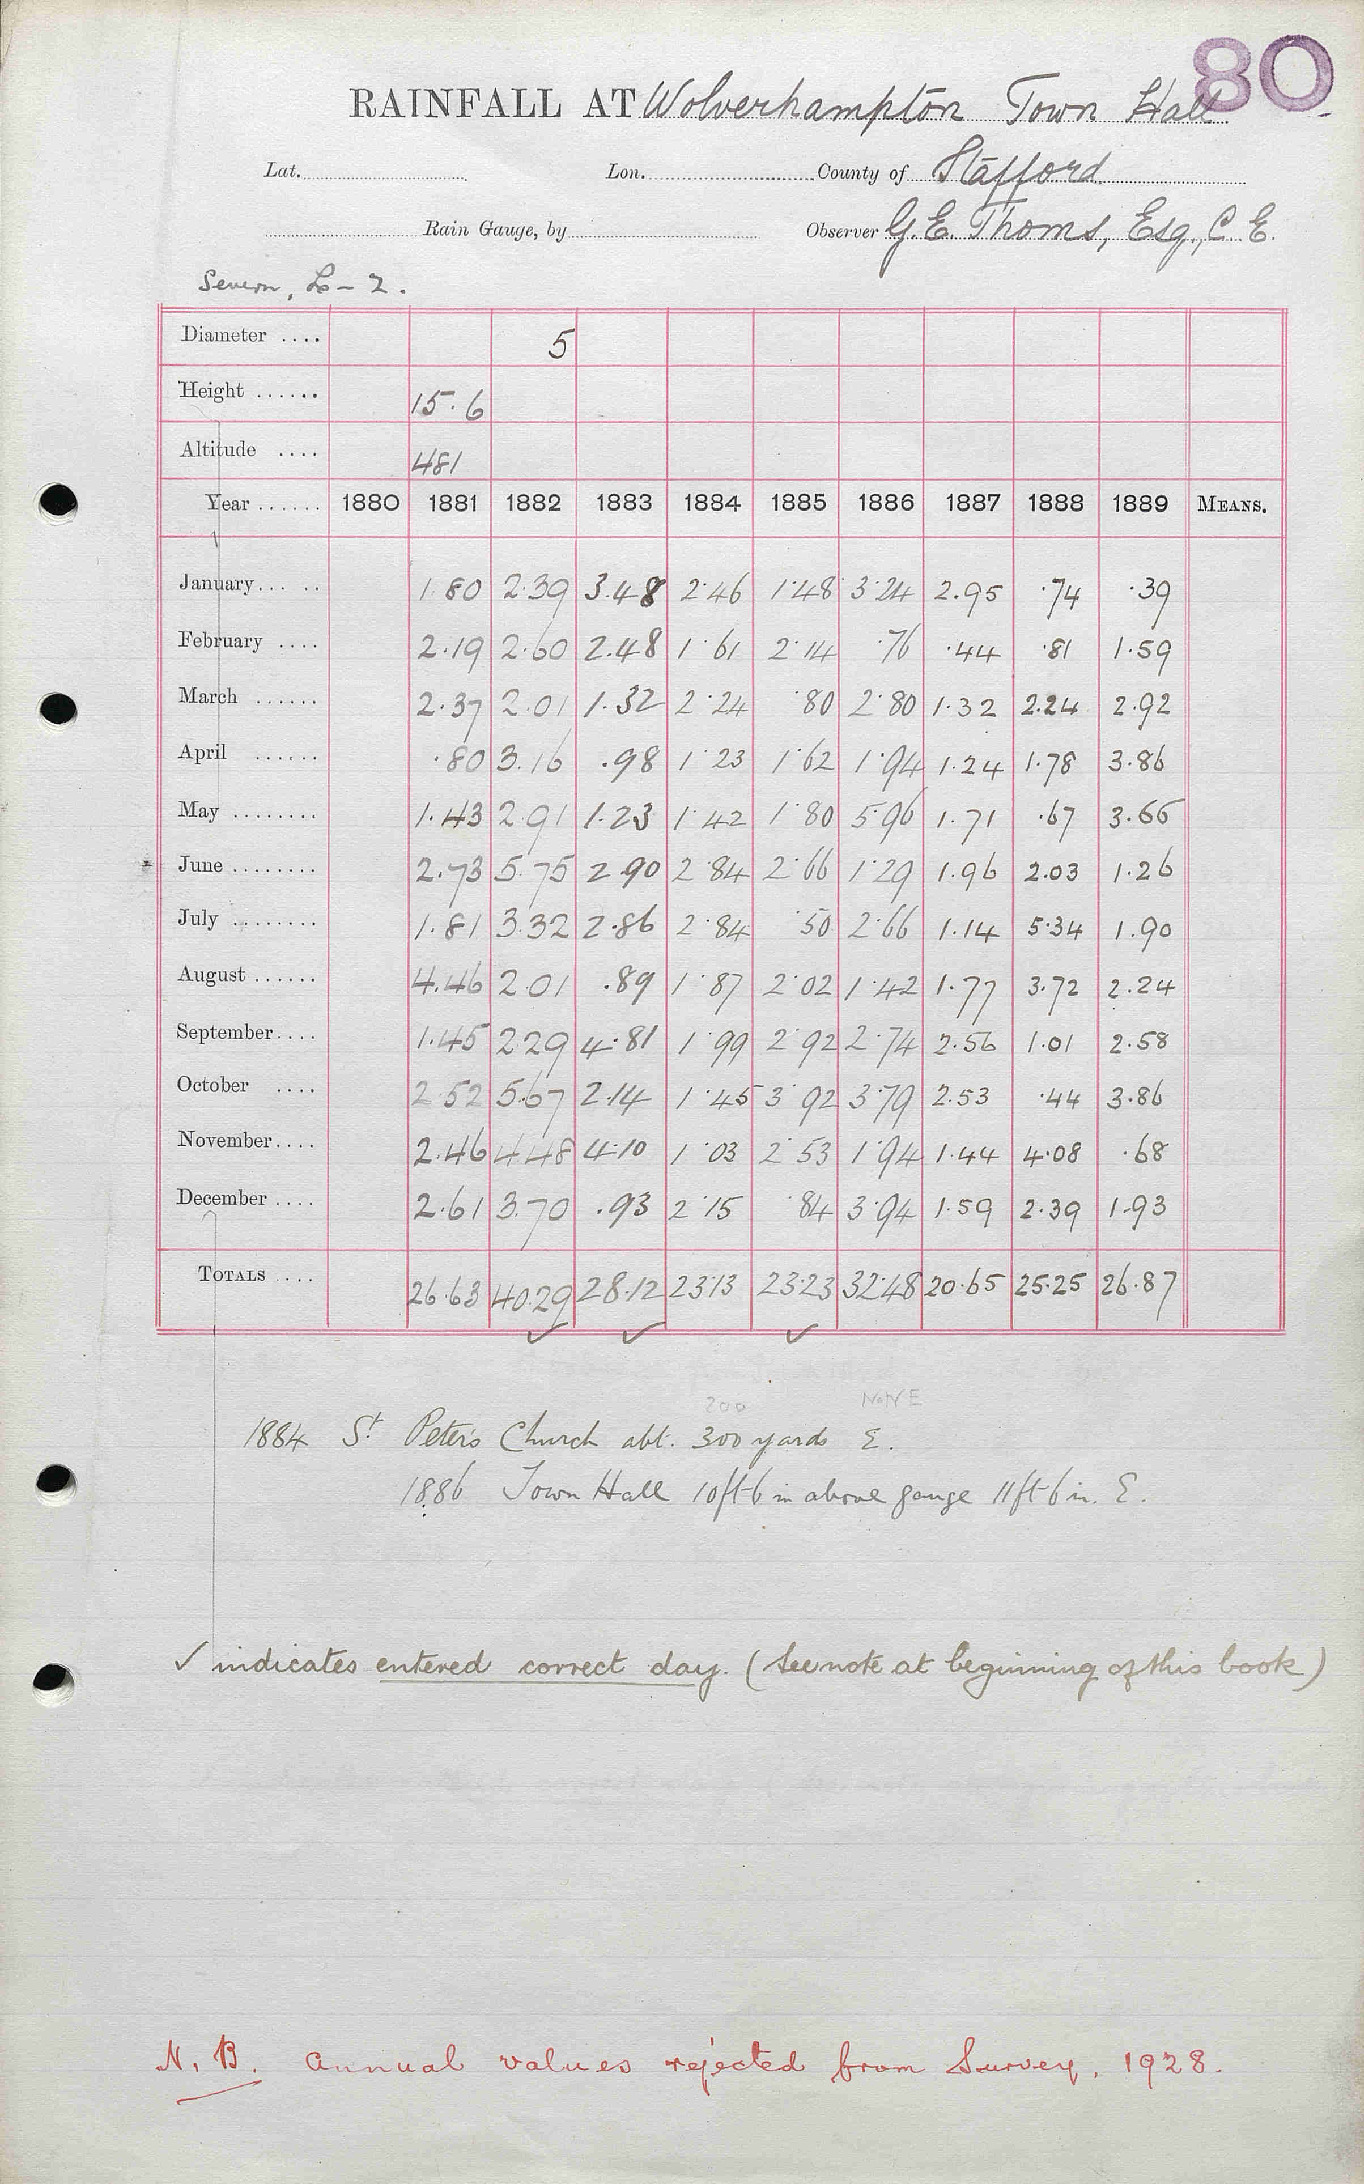 80
RAINFALL AT Wolverhampton Town Hall
Lat. Lon. County of Stafford
Rain Gauge, by Observer G.E. Thoms, Esq., C.E.
Severn,
Diameter .... 5
Height ...... 15.6
Altitude .... 481
Year ...... 1880 1881 1882 1883 1884 1885 1886 1887 1888 1889 MEANS.
January... .. 1.80 2.39 3.48 2.46 1.48 3.24 2.95 .74 .39
February .... 2.19 2.60 2.48 1.61 2.14 .76 .44 .81 1.59
March ...... 2.37 2.01 1.32 2.24 .80 2.80 1.32 2.24 2.92
April ...... .80 3.16 .98 1.23 1.62 1.94 1.24 1.78 3.86
May ........ 1.43 2.91 1.23 1.42 1.80 5.96 1.71 .67 3.66
June ........ 2.73 5.75 2.90 2.84 2.66 1.29 1.96 2.03 1.26
July ........ 1.81 3.32 2.86 2.84 .50 2.66 1.14 5.34 1.90
August ...... 4.46 2.01 .89 1.87 2.02 1.42 1.77 3.72 2.24
September.... 1.45 2.29 4.81 1.99 2.92 2.74 2.56 1.01 2.58
October .... 2.52 5.67 2.14 1.45 3.92 3.79 2.53 .44 3.86
November.... 2.46 4.48 4.10 1.03 2.53 1.94 1.44 4.08 .68
December .... 2.61 3.70 .93 2.15 .84 3.94 1.59 2.39 1.93
TOTALS .... 26.63 40.29 28.12 23.13 23.23 32.48 20.65 25.25 26.87
✓ ✓ ✓
200 NNE
1884 St Peter's Church abt. 300 yards E.
1886 Town Hall 10ft 6 in above gauge 11ft 6 in. E.
✓ indicates entered correct day. (See note at beginning of this book)
N.B. Annual values rejected from Survey, 1928.